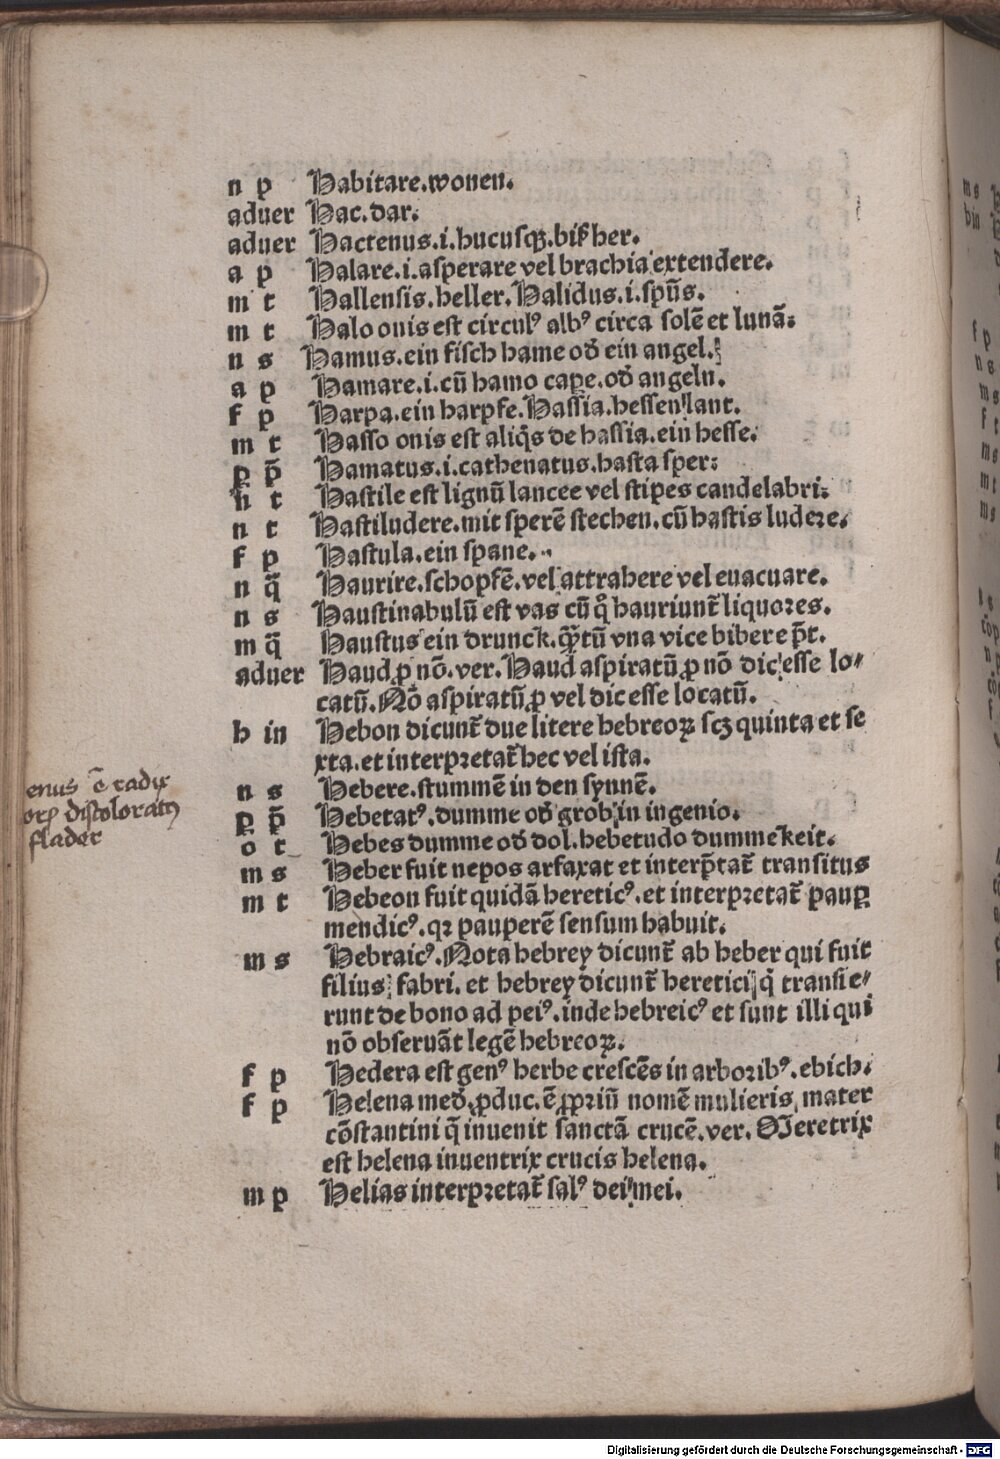 n p Habitare.wonen.
aduer Hac.dar.
aduer Hactenus.i.hucusqꝫ.biß her.
a p Halare.i.asperare vel brachia extendere.
m t Hallensis.heller.Halidus.i.spūs.
m t Halo onis est circulꝰ albꝰ circa solē et lunā.
n s Hamus.ein fisch hame oď ein angel.
a p Hamare.i.cū hamo cape.oď angeln.
f p Harpa.ein harpfe.Hassia.hessen lant.
m t Hasso onis est aliq̄s de hassia.ein hesse.
p p̄ Hamatus.i.cathenatus.hasta sper:
n t Hastile est lignū lancee vel stipes candelabri.
n t Hastiludere.mit sperē stechen.cū hastis ludere.
f p Hastula.ein spane.
n q̄ Haurire.schopfē.vel attrahere vel euacuare.
n s Haustinabulū est vas cū q̊ hauriunt̄ liquores.
m q̄ Haustus ein drunck.qꝫtū vna vice bibere p̄t.
aduer Haud ꝓ nō.ver.Haud aspiratū ꝓ nō dic esse lo⸗
catū.Nō aspiratū ꝓ vel dic esse locatū.
h in Hebon dicunt̄ due litere hebreoꝝ scꝫ quinta et se
xta.et interpretat̄ hec vel ista.
n s Hebere.stummē in den synnē.
p p̄ Hebetatꝰ.dumme oď grob in ingenio.
o t Hebes dumme oď dol.hebetudo dummekeit.
m s Heber fuit nepos arfaxat et interp̄tat̄ transitus
m t Hebeon fuit quidā hereticꝰ.et interpretat̄ paup
mendicꝰ.qꝛ pauperē sensum habuit.
m s Hebraicꝰ.Nota hebrey dicunt̄ ab heber qui fuit
filius fabri.et hebrey dicunt̄ heretici q̇ transie⸗
runt de bono ad peiꝰ.inde hebreicꝰ et sunt illi qui
nō obseruāt legē hebreoꝝ.
f p Hedera est genꝰ herbe crescēs in arboribꝰ.ebich.
f p Helena meď ꝓduc.ē ꝓpriū nomē mulieris mater
cōstantini q̄ inuenit sanctā crucē.ver.Meretrix
est helena inuentrix crucis helena.
m p Helias interpretat̄ salꝰ dei mei.
enus ē radix
discoloratꝰ
flader
Digitalisierung gefördert durch die Deutsche Forschungsgemeinschaft - DFG